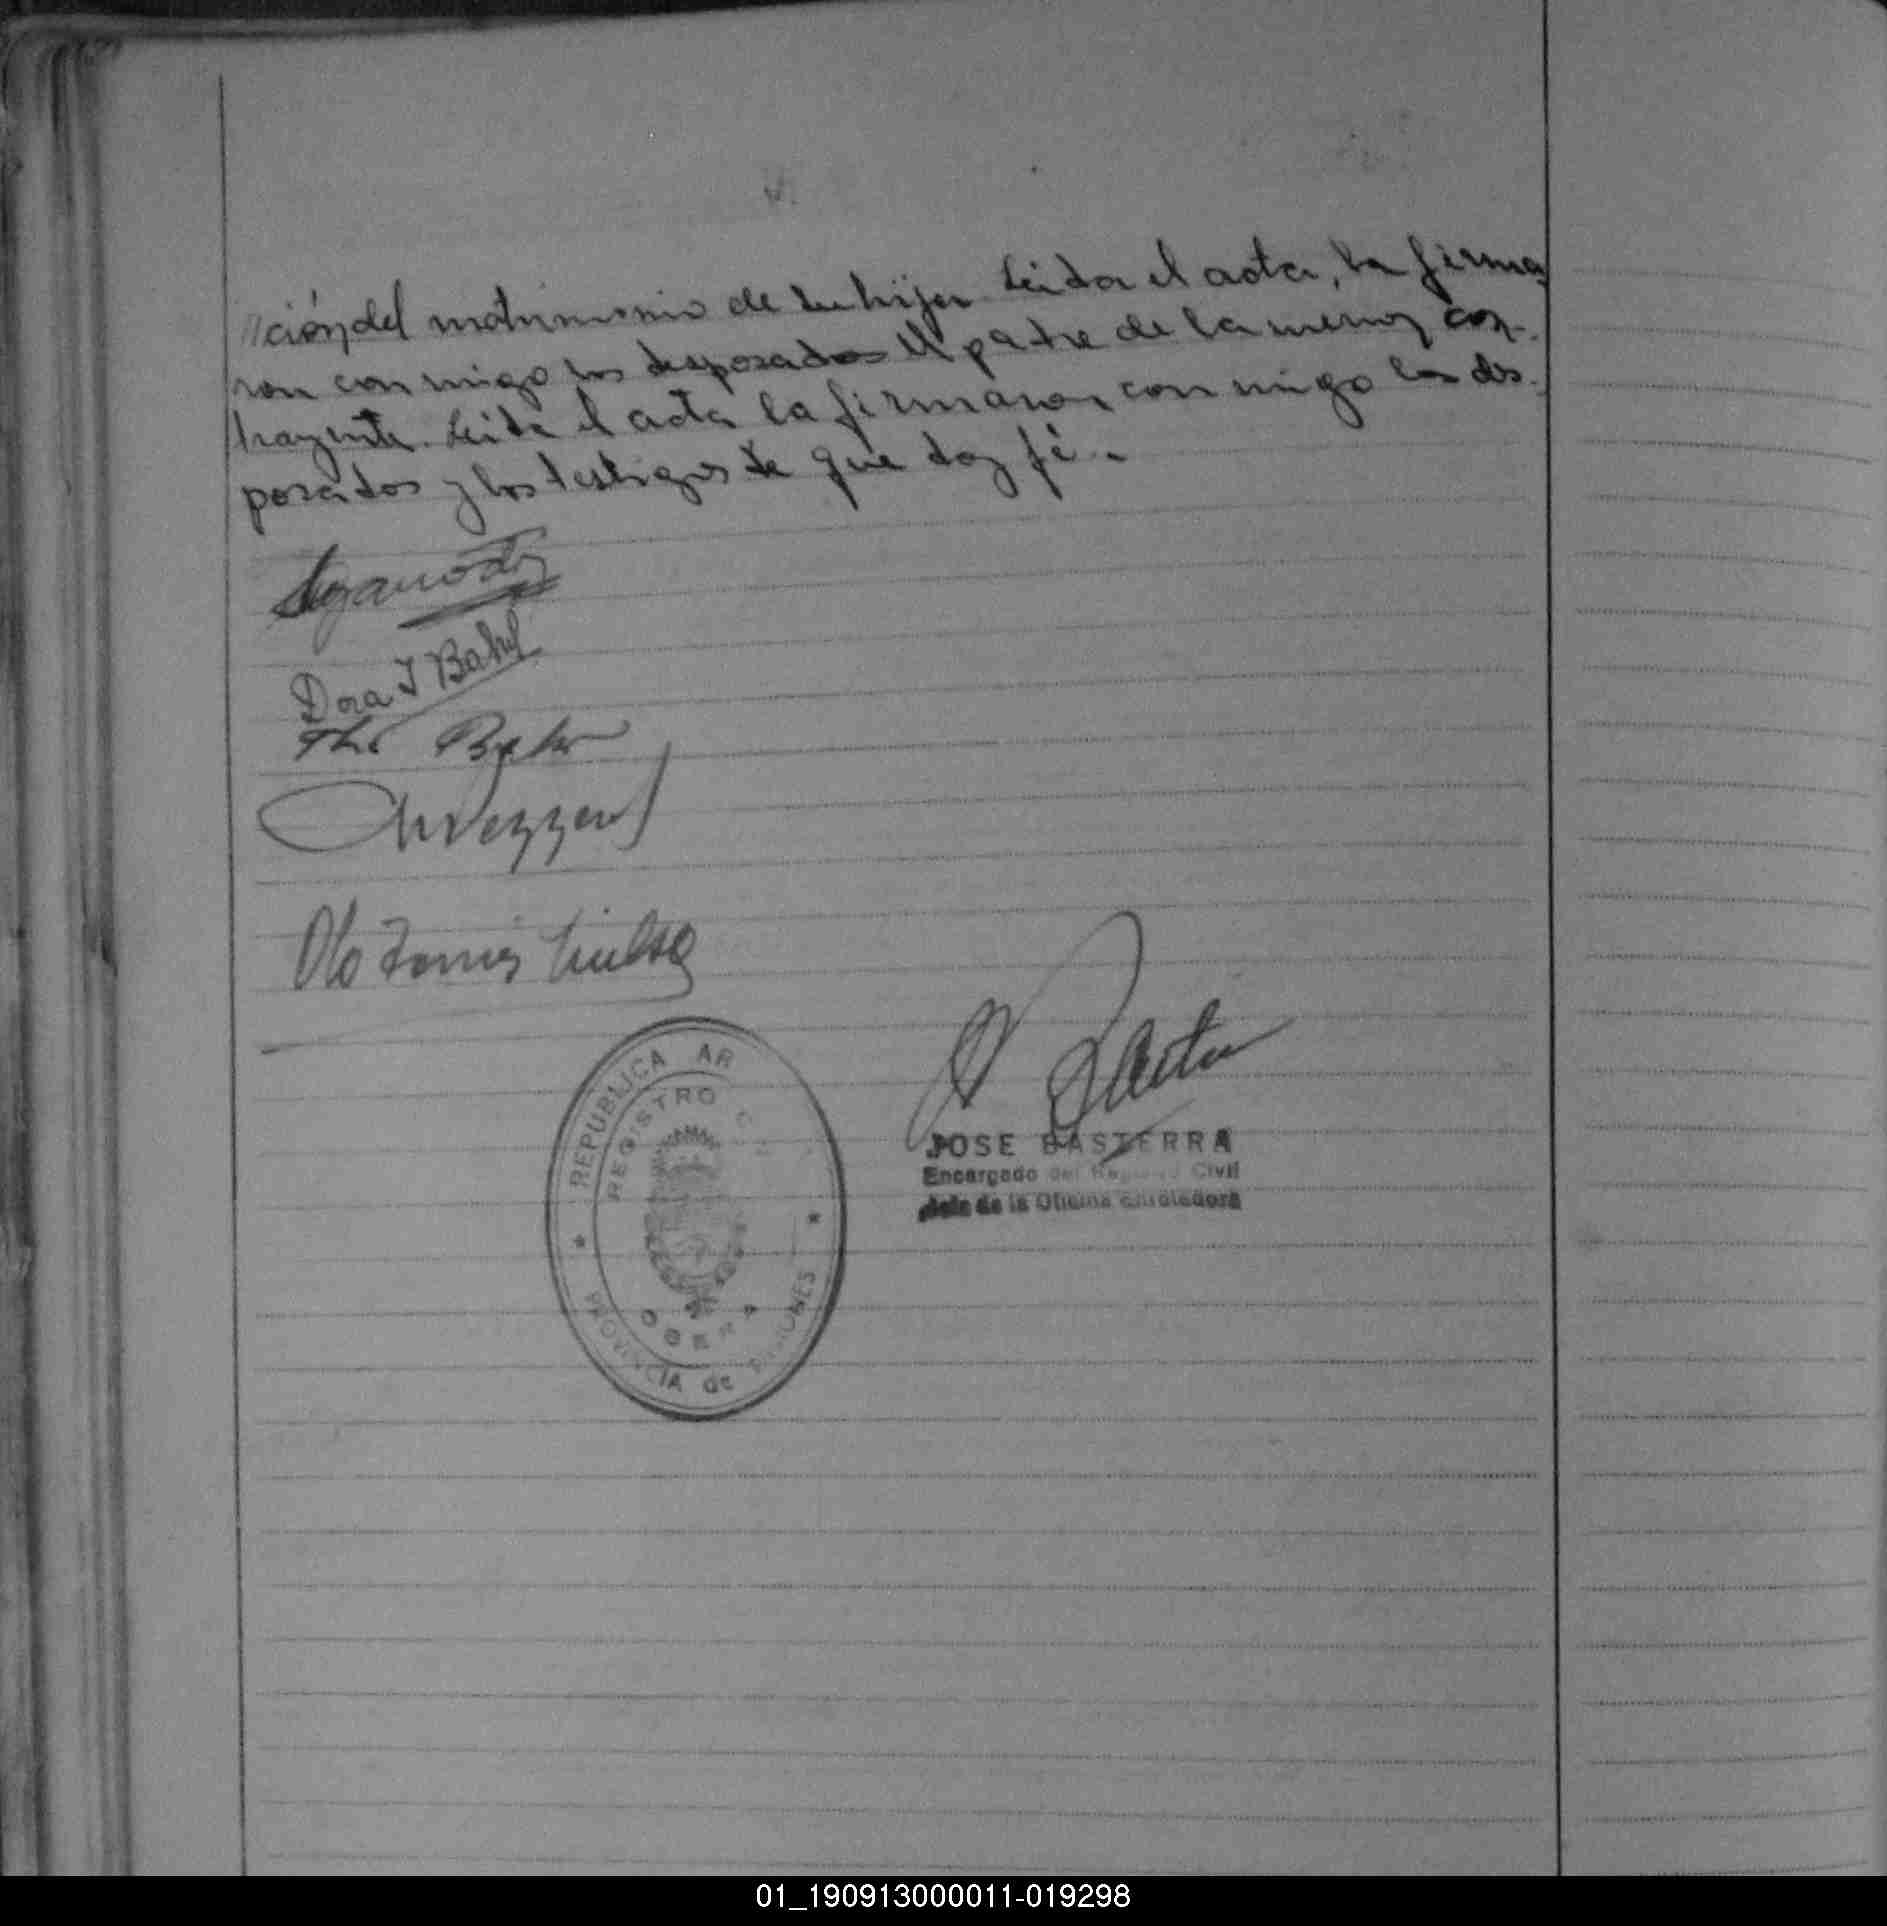 ción del matrimonio de su hija Leida el acta, la firma
ron con migo los desposados El padre de la menor con-
trayente. Leida el acta la firmaron con migo los des-
posados y los testigos de que doy fé.-
Dora I Bahr
Bahr
REPUBLICA AR
REGISTRO C
OBERA
PROVINCIA de MISIONES
JOSE BASTERRA
Encargado del Registro Civil
Jefe de la Oficina Enroladora
01_190913000011-019298